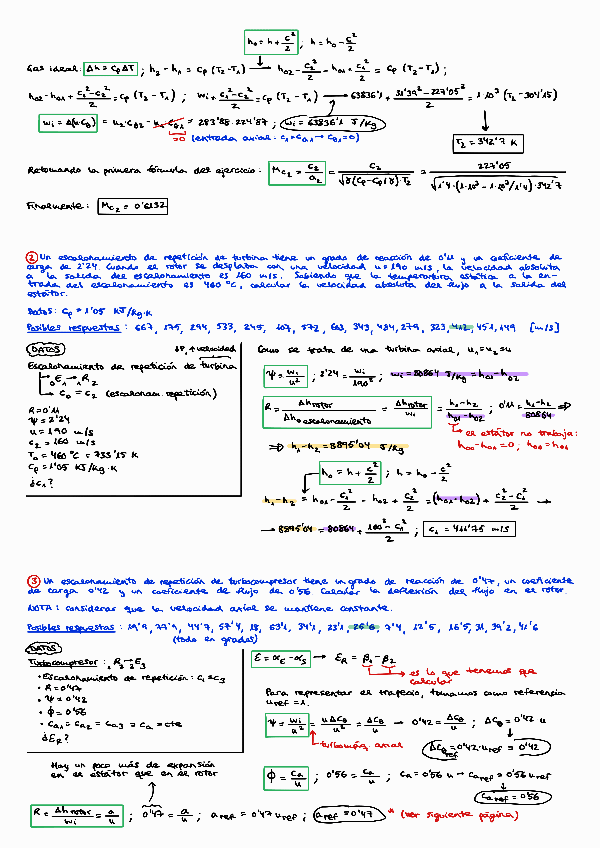 h₀ = h + c²/2 ; h = h₀ - c²/2
Gas ideal: Δh = CpΔT ; h₂ - h₁ = Cp (T₂ - T₁) → h₀₂ - c₂²/2 - h₀₁ + c₁²/2 = Cp (T₂ - T₁) ;
h₀₂ - h₀₁ + (c₁² - c₂²)/2 = Cp (T₂ - T₁) ; wi + (c₁² - c₂²)/2 = Cp (T₂ - T₁) → 63836'1 + (31'39² - 227'05²)/2 = 1·10³ (T₂ - 304'15)
wi = Δ(u·Cθ) = u₂·Cθ₂ - u₁·Cθ₁ = 283'88·224'87 ; wi = 63836'1 J/kg
=0 (entrada axial: c₁ = Ca₁ → Cθ₁ = 0)
T₂ = 342'7 K
Retomando la primera fórmula del ejercicio: Mc₂ = c₂/a₂ = c₂/√(γ(Cp - Cp/γ)·T₂) = 227'05/√(1'4·(1·10³ - 1·10³/1'4)·342'7)
Finalmente: Mc₂ = 0'6132
② Un escalonamiento de repetición de turbina tiene un grado de reacción de 0'11 y un coeficiente de
carga de 2'24. Cuando el rotor se desplaza con una velocidad u = 190 m/s, la velocidad absoluta
a la salida del escalonamiento es 160 m/s. Sabiendo que la temperatura estática a la en-
trada del escalonamiento es 460 °C, calcular la velocidad absoluta del flujo a la salida del
estátor.
Datos: Cp = 1'05 KJ/kg·K
Posibles respuestas: 667, 175, 294, 533, 245, 107, 572, 603, 343, 484, 279, 323, 412, 451, 149 [m/s]
DATOS
↓P, ↑velocidad
Escalonamiento de repetición de turbina
E₁→R₂
C₀ = C₂ (escalonam. repetición)
R = 0'11
Ψ = 2'24
u = 190 m/s
c₂ = 160 m/s
T₀ = 460 °C = 733'15 K
Cp = 1'05 KJ/kg·K
¿c₁?
Como se trata de una turbina axial, u₁ = u₂ = u
Ψ = wi/u² ; 2'24 = wi/190² ; wi = 80864 J/kg = h₀₁ - h₀₂
R = Δh rotor/Δh₀ escalonamiento = Δh rotor/wi = (h₁ - h₂)/(h₀₁ - h₀₂) ; 0'11 = (h₁ - h₂)/80864 ⇒
el estátor no trabaja:
h₀₀ - h₀₁ = 0 ; h₀₀ = h₀₁
⇒ h₁ - h₂ = 8895'04 J/kg
h₀ = h + c²/2 ; h = h₀ - c²/2
h₁ - h₂ = h₀₁ - c₁²/2 - h₀₂ + c₂²/2 = (h₀₁ - h₀₂) + (c₂² - c₁²)/2 →
→ 8895'04 = 80864 + (160² - c₁²)/2 ; c₁ = 411'75 m/s
③ Un escalonamiento de repetición de turbocompresor tiene un grado de reacción de 0'47, un coeficiente
de carga 0'42 y un coeficiente de flujo de 0'56. Calcular la deflexión del flujo en el rotor.
NOTA: considerar que la velocidad axial se mantiene constante.
Posibles respuestas: 19'9, 77'9, 44'7, 57'4, 18, 63'1, 34'1, 23'1, 26'6, 7'4, 12'5, 16'5, 31, 39'2, 41'6
(todo en grados)
DATOS
Turbocompresor: R₂→E₃
• Escalonamiento de repetición: c₁ = c₃
• R = 0'47
• Ψ = 0'42
• Φ = 0'56
• Ca₁ = Ca₂ = Ca₃ = Ca = cte
¿ε_R?
ε = α_E - α_S → ε_R = β₁ - β₂
es lo que tenemos que
calcular
Para representar el trapecio, tomamos como referencia
u ref = 1.
Ψ = wi/u² = uΔCθ/u² = ΔCθ/u → 0'42 = ΔCθ/u ; ΔCθ = 0'42 u
turbomáq. axial
ΔCθ ref = 0'42·u ref = 0'42
Φ = Ca/u ; 0'56 = Ca/u ; Ca = 0'56 u → Ca ref = 0'56 u ref
Ca ref = 0'56
Hay un poco más de expansión
en el estátor que en el rotor
R = Δh rotor/wi = a/u ; 0'47 = a/u ; a ref = 0'47 u ref ; a ref = 0'47 * (ver siguiente página)